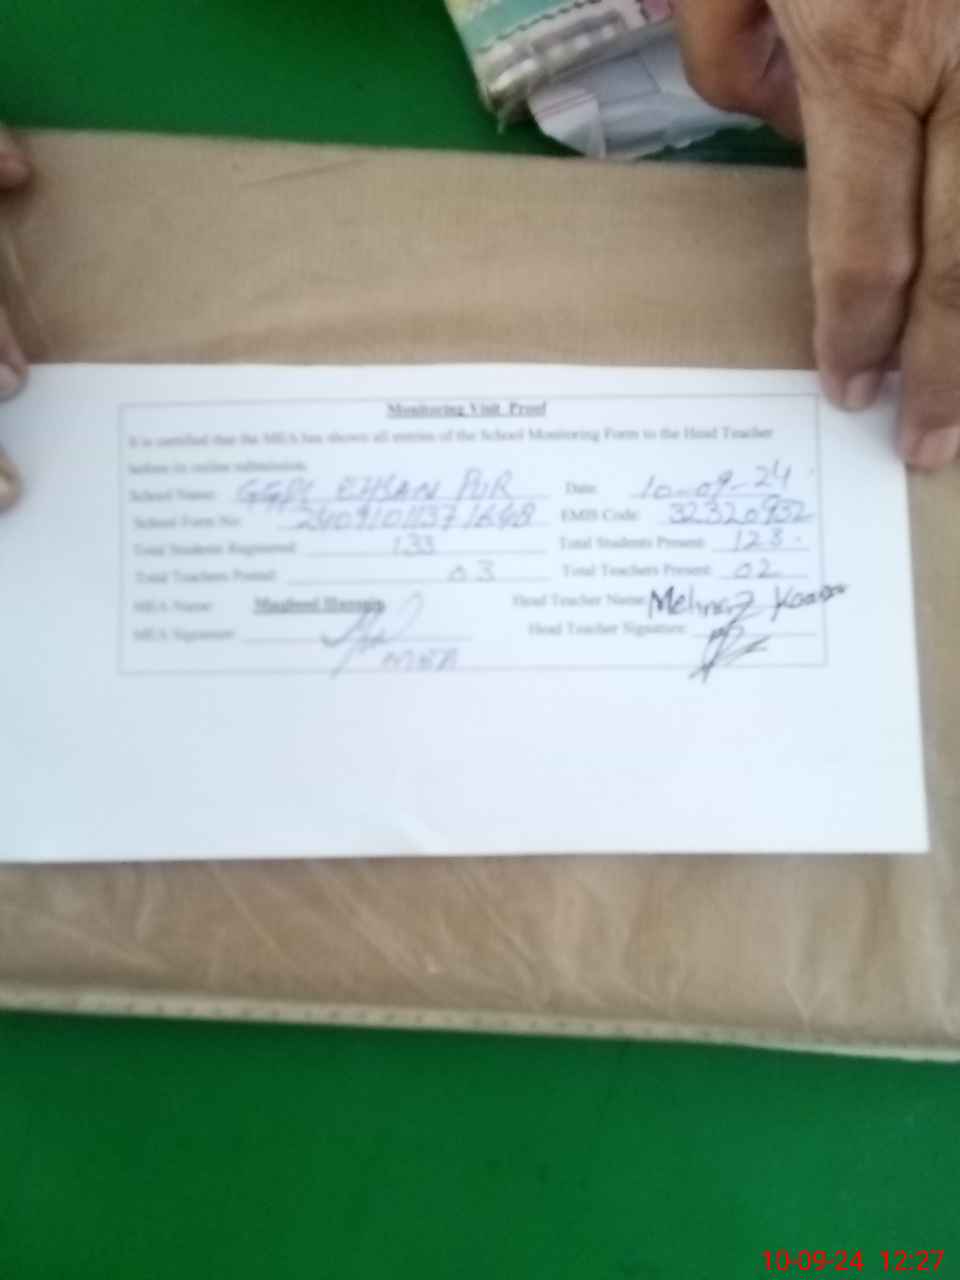 Monitoring Visit Proof
It is certified that the MEA has shown all entries of the School Monitoring Form to the Head Teacher
before its online submission.
School Name: EHSAN PUR Date: 10-09-24
School Form No: EMIS Code: 32320932
Total Students Registered: 133 Total Students Present: 128
Total Teachers Posted: 03 Total Teachers Present: 02
MEA Name: Maqbool Hussain Head Teacher Name: Mehnaz Kousar
MEA Signature: Head Teacher Signature:
MEA
10-09-24 12:27